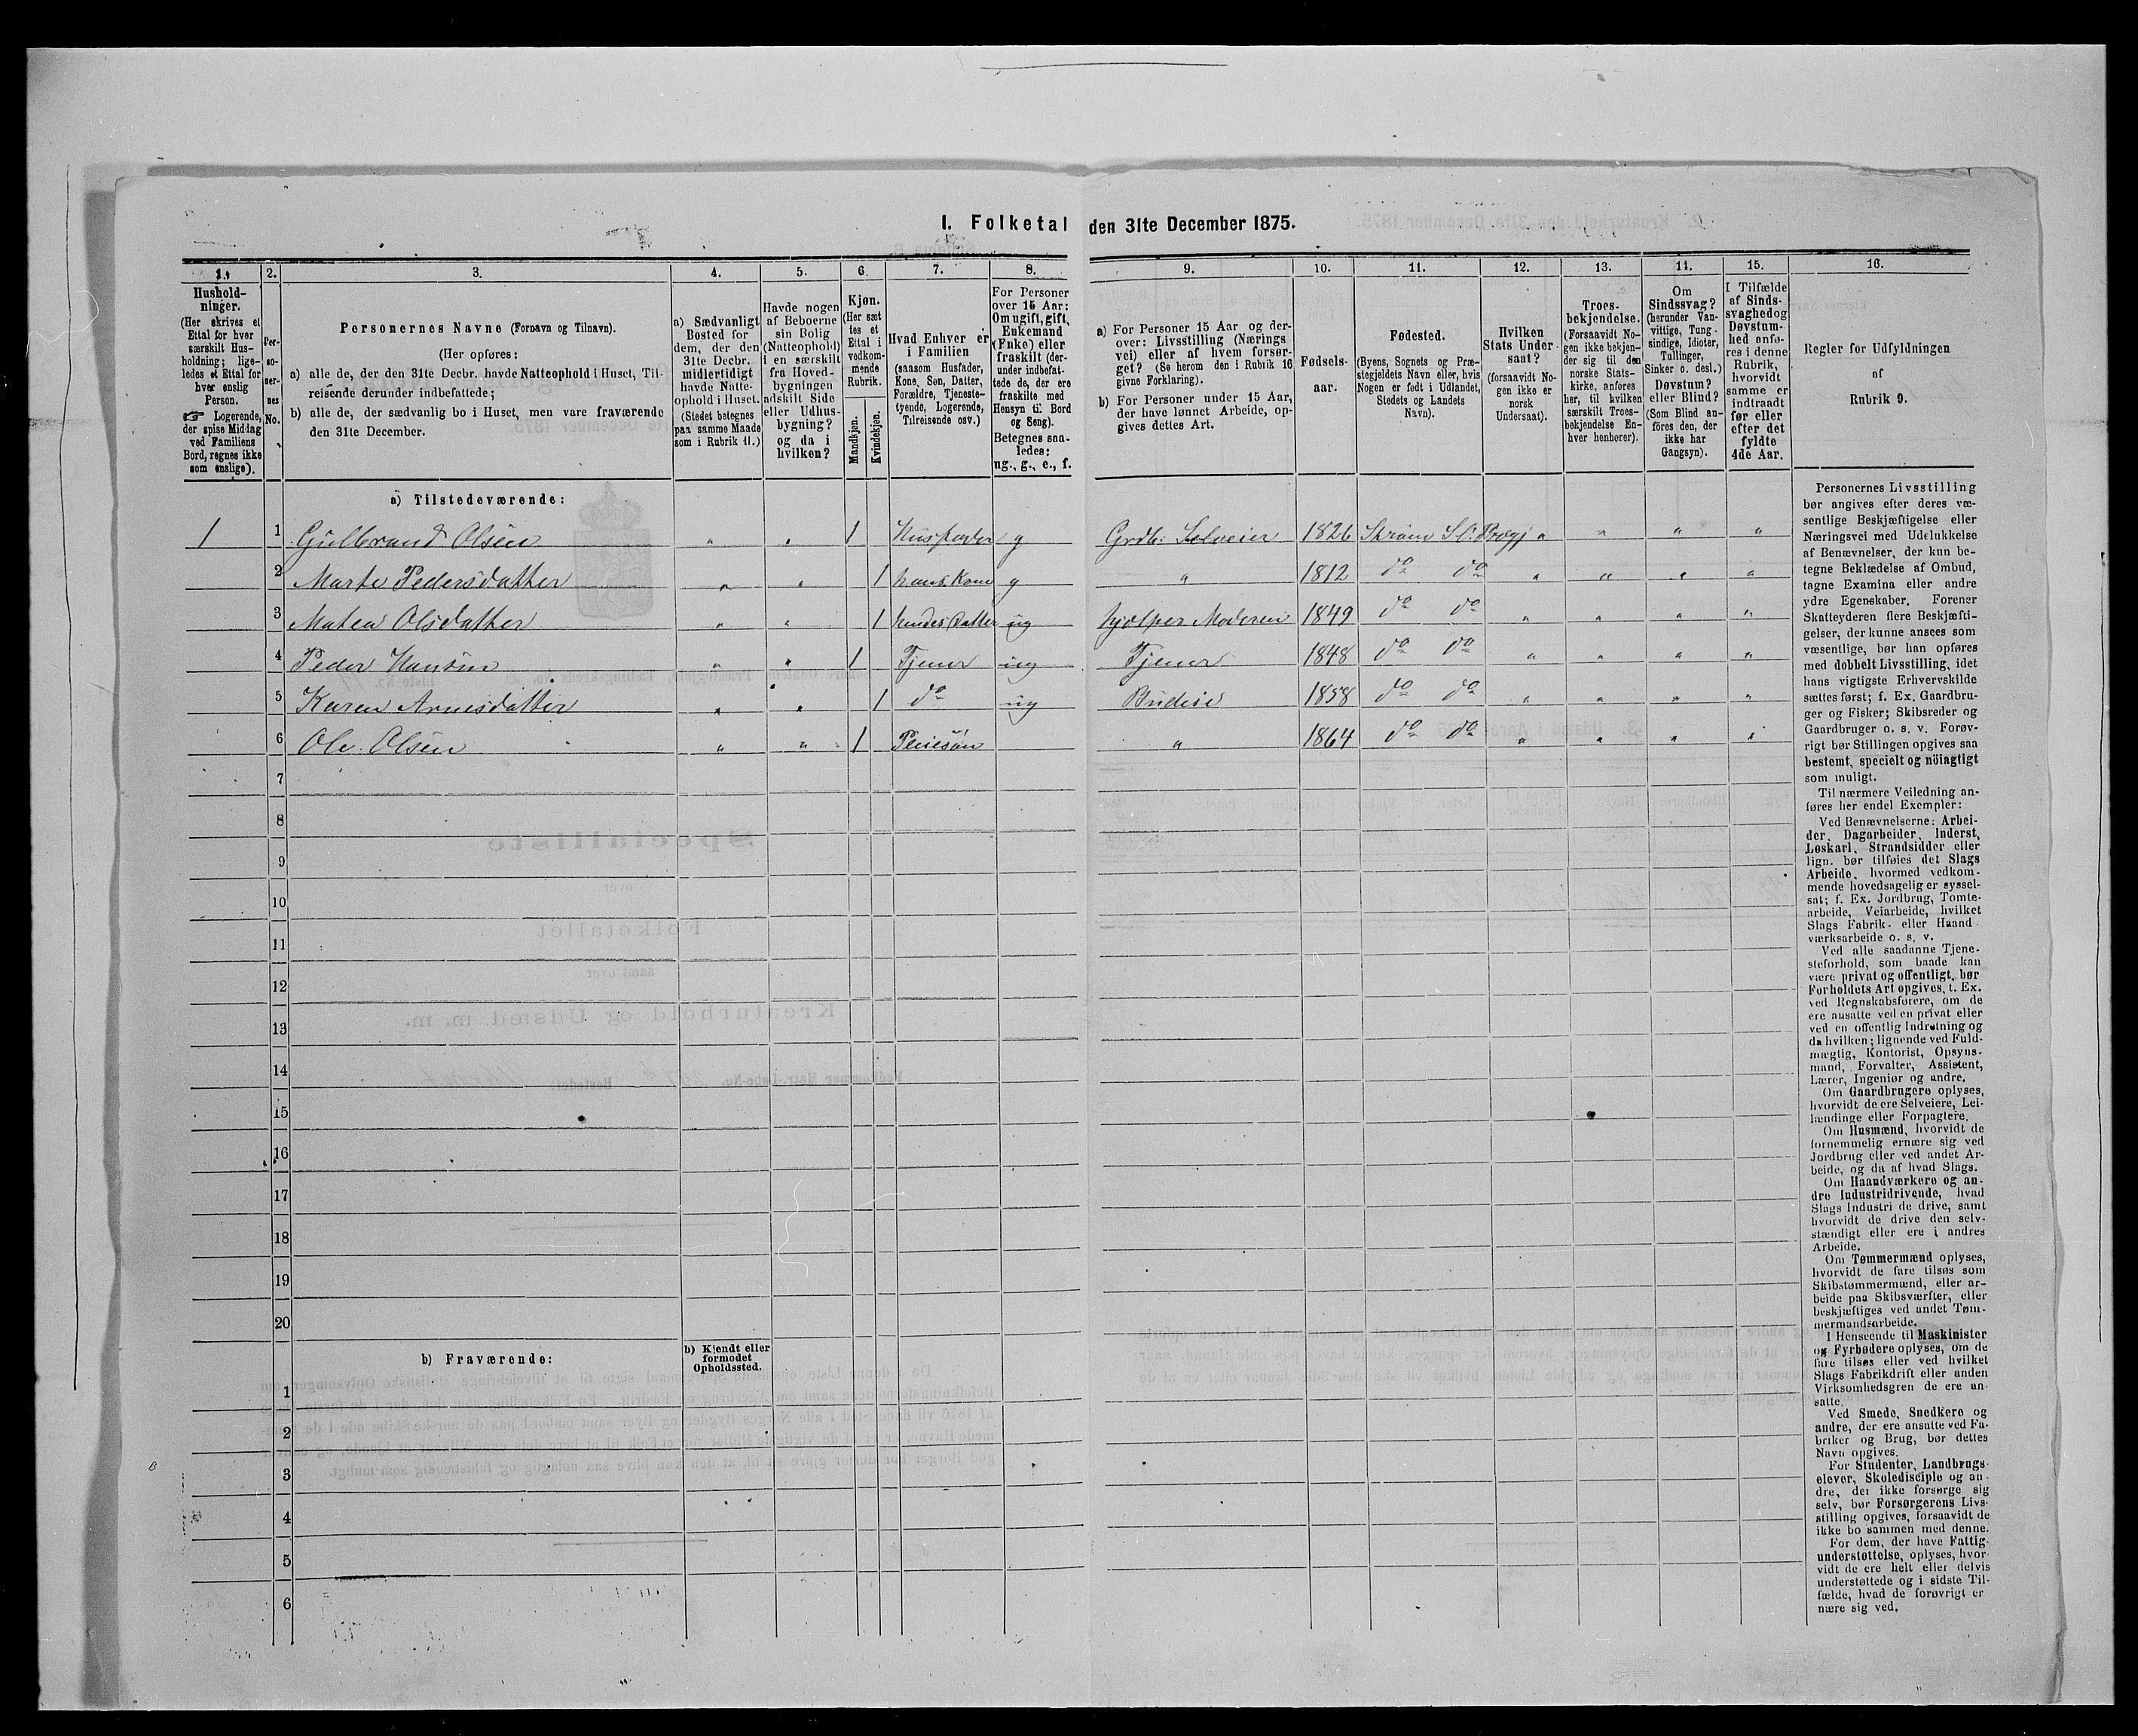 I. Folketal den 31te December 1875.
1. 2. 3. 4. 5. 6. 7. 8. 9. 10. 11. 12. 13. 14. 15. 16.
Hushold-
ninger.
(Her skrives et
Ettal for hver
særskilt Hus-
holdning; lige-
ledes et Ettal for
hver enslig
Person.
☞ Logerende,
der spise Middag
ved Familiens
Bord, regnes ikke
som enslige).
Per-
so-
ner-
nes
No.
Personernes Navne (Fornavn og Tilnavn).
(Her opføres:
a) alle de, der den 31te Decbr. havde Natteophold i Huset, Til-
reisende derunder indbefattede;
b) alle de, der sædvanlig bo i Huset, men vare fraværende
den 31te December.
a) Sædvanligt
Bosted for
dem, der den
31te Decbr.
midlertidigt
havde Natte-
ophold i Huset.
(Stedet betegnes
paa samme Maade
som i Rubrik 11.)
Havde nogen
af Beboerne
sin Bolig
(Natteophold)
i en særskilt
fra Hoved-
bygningen
adskilt Side
eller Udhus-
bygning?
og da i
hvilken?
Kjøn.
(Her sæt
tes et
Ettal i
vedkom-
mende
Rubrik.
Mandkjøn.
Kvindekjøn.
Hvad Enhver er
i Familien
(saasom Husfader,
Kone, Søn, Datter,
Forældre, Tjeneste-
tyende, Logerende,
Tilreisende osv.)
For Personer
over 15 Aar:
Om ugift, gift,
Enkemand
(Enke) eller
fraskilt (der-
under indbefat-
tede de, der ere
fraskilte med
Hensyn til Bord
og Seng).
Betegnes saa-
ledes:
ug., g., e., f.
a) For Personer 15 Aar og der-
over: Livsstilling (Nærings
vei) eller af hvem forsør-
get? (Se herom den i Rubrik 16
givne Forklaring).
b) For Personer under 15 Aar,
der have lønnet Arbeide, op-
gives dettes Art.
Fødsels-
aar.
Fødested.
(Byens, Sognets og Præ-
stegjeldets Navn eller, hvis
Nogen er født i Udlandet,
Stedets og Landets
Navn).
Hvilken
Stats Under-
saat?
(forsaavidt No-
gen ikke er
norsk
Undersaat).
Troes-
bekjendelse.
(Forsaavidt No-
gen ikke bekjen-
der sig til den
norske Stats-
kirke, anføres
her, til hvilken
særskilt Troes-
bekjendelse En-
hver henhører).
Om
Sindssvag?
(herunder Van-
vittige, Tung-
sindige, Idioter,
Tullinger,
Sinker o. desl.)
Døvstum?
eller Blind?
(Som Blind an-
føres den, der
ikke har
Gangsyn).
I Tilfælde
af Sinds-
svaghed og
Døvstum-
hed anfø-
res i denne
Rubrik,
hvorvidt
samme er
indtraadt
før eller
efter det
fyldte
4de Aar.
Regler for Udfyldningen
af
Rubrik 9.
a) Tilstedeværende:
1 1 Gulbrand Olsen " " 1 Husfader g Grdb. Selveier 1826 " " " "
2 Marte Pedersdatter " " 1 hans Kone g " 1812 do do " " " "
3 Matea Olsdatter " " 1 hendes Datter ug hjælper Moderen 1849 do do " " " "
4 Peder Hansen " " 1 Tjener ug Tjener 1848 do do " " " "
5 Karen Arnesdatter " " 1 do ug Budeie 1858 do do " " " "
6 Ole Olsen " " 1 Pleiesøn " 1864 do do " " " "
7
8
9
10
11
12
13
14
15
16
17
18
19
20
b) Fraværende:
b) Kjendt eller
formodet
Opholdssted.
1
2
3
4
5
6
Personernes Livsstilling
bør angives efter deres væ-
sentlige Beskjæftigelse eller
Næringsvei med Udelukkelse
af Benævnelser, der kun be-
tegne Beklædelse af Ombud,
tagne Examina eller andre
ydre Egenskaber. Forener
Skatteyderen flere Beskjæfti-
gelser, der kunne ansees som
væsentlige, bør han opføres
med dobbelt Livsstilling, idet
hans vigtigste Erhvervskilde
sættes først; f. Ex. Gaardbru-
ger og Fisker; Skibsreder og
Gaardbruger o. s. v. Forøv-
rigt bør Stillingen opgives saa
bestemt, specielt og nöiagtigt
som muligt.
Til nærmere Veiledning an-
føres her endel Exempler:
Ved Benævnelserne: Arbei-
der, Dagarbeider, Inderst,
Løskarl, Strandsidder eller
lign. bør tilføies det Slags
Arbeide, hvormed vedkom-
mende hovedsagelig er syssel-
sat; f. Ex. Jordbrug, Tomte-
arbeide, Veiarbeide, hvilket
Slags Fabrik- eller Haand-
værksarbeide o. s. v.
Ved alle saadanne Tjene-
steforhold, som baade kan
være privat og offentligt, bør
Forholdets Art opgives, t. Ex.
ved Regnskabsførere, om de
ere ansatte ved en privat eller
ved en offentlig Indretning og
da hvilken; lignende ved Fuld-
mægtig, Kontorist, Opsyns-
mand, Forvalter, Assistent,
Lærer, Ingeniør og andre.
Om Gaardbrugere oplyses,
hvorvidt de ere Selveiere, Lei-
lændinge eller Forpagtere.
Om Husmænd, hvorvidt de
fornemmelig ernære sig ved
Jordbrug eller ved andet Ar-
beide, og da af hvad Slags.
Om Haandværkere og an-
dre Industridrivende, hvad
Slags Industri de drive, samt
hvorvidt de drive den selv-
stændigt eller ere i andres
Arbeide.
Om Tømmermænd oplyses,
hvorvidt de fare tilsøs som
Skibstømmermænd, eller ar-
beide paa Skibsværfter, eller
beskjæftiges ved andet Tøm-
mermandsarbeide.
I Henseende til Maskinister
og Fyrbødere oplyses, om de
fare tilsøs eller ved hvilket
Slags Fabrikdrift eller anden
Virksomhedsgren de ere an-
satte.
Ved Smede, Snedkere og
andre, der ere ansatte ved Fa-
briker og Brug, bør dettes
Navn opgives.
For Studenter, Landbrugs-
elever, Skoledisciple og an-
dre, der ikke forsørge sig
selv, bør Forsørgerens Livs-
stilling opgives, forsaavidt de
ikke bo sammen med denne.
For dem, der have Fattig-
understøttelse, oplyses, hvor-
vidt de ere helt eller delvis
understøttede og i sidste Til-
fælde, hvad de forøvrigt er
nære sig ved.